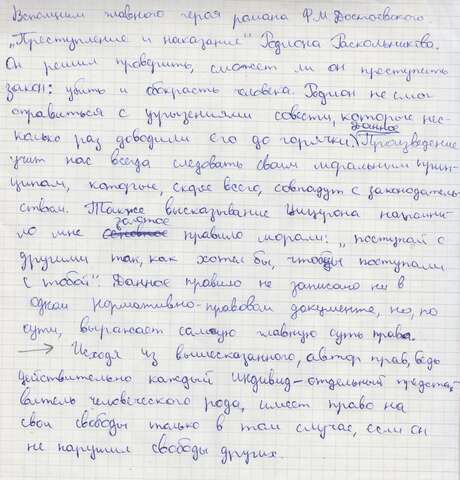 Вспомним главного героя романа Ф.М. Достоевского
„Преступление и наказание" Родиона Раскольникова.
Он решил проверить, сможет ли он преступить
закон: убить и обокрасть человека. Родион не смог
справиться с угрызениями совести, которые нес-
колько раз доводили его до горячки. Данное произведение
учит нас всегда следовать своим моральным прин-
ципам, которые, скорее всего, совпадут с законодатель-
ством. Также высказывание Цицерона напомни-
ло мне золотое правило морали: „поступай с
другими так, как хотел бы, чтобы поступали
с тобой". Данное правило не записано ни в
одном нормативно-правовом документе, но, по
сути, выражает самую главную суть права.
→ Исходя из вышесказанного, автор прав, ведь
действительно каждый индивид – отдельный предста-
витель человеческого рода, имеет право на
свои свободы только в том случае, если он
не нарушил свободы других.